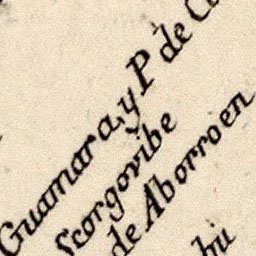 Guamara, y P de
Scorgovibe
de Aborroen